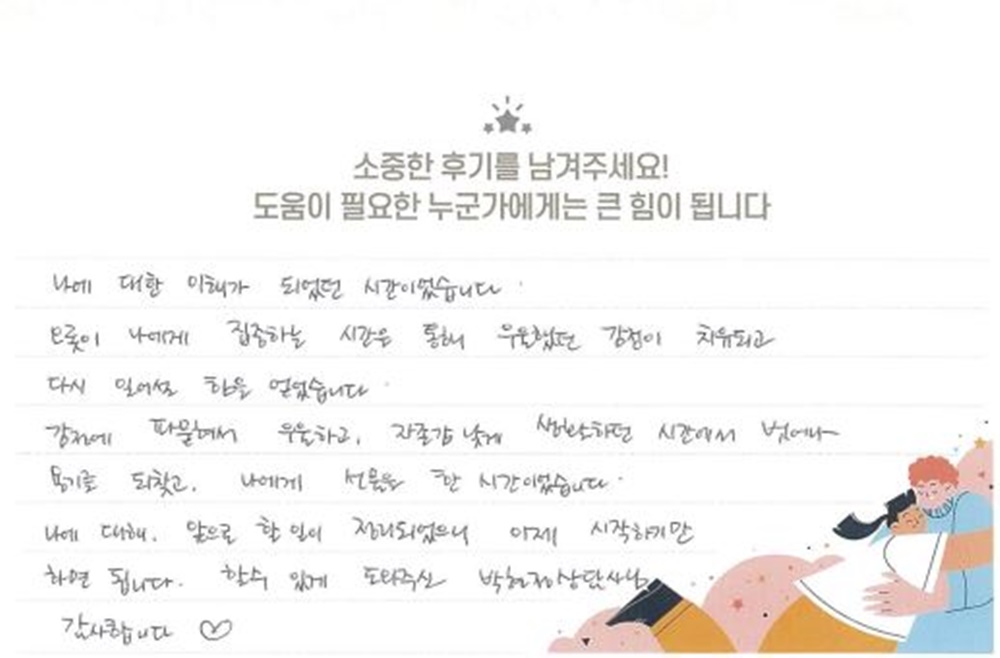 소중한 후기를 남겨주세요!
도움이 필요한 누군가에게는 큰 힘이 됩니다
나에 대한 이해가 되었던 시간이었습니다.
오롯이 나에게 집중하는 시간을 통해 우울했던 감정이 치유되고
다시 일어설 힘을 얻었습니다.
감정에 파묻혀서 우울하고, 자존감 낮게 생활하던 시간에서 벗어나
용기를 되찾고, 나에게 선물을 한 시간이었습니다.
나에 대해, 앞으로 할 일이 정리되었으니 이제 시작하기만
하면 됩니다. 할수 있게 도와주신 상담사님
감사합니다 ♡